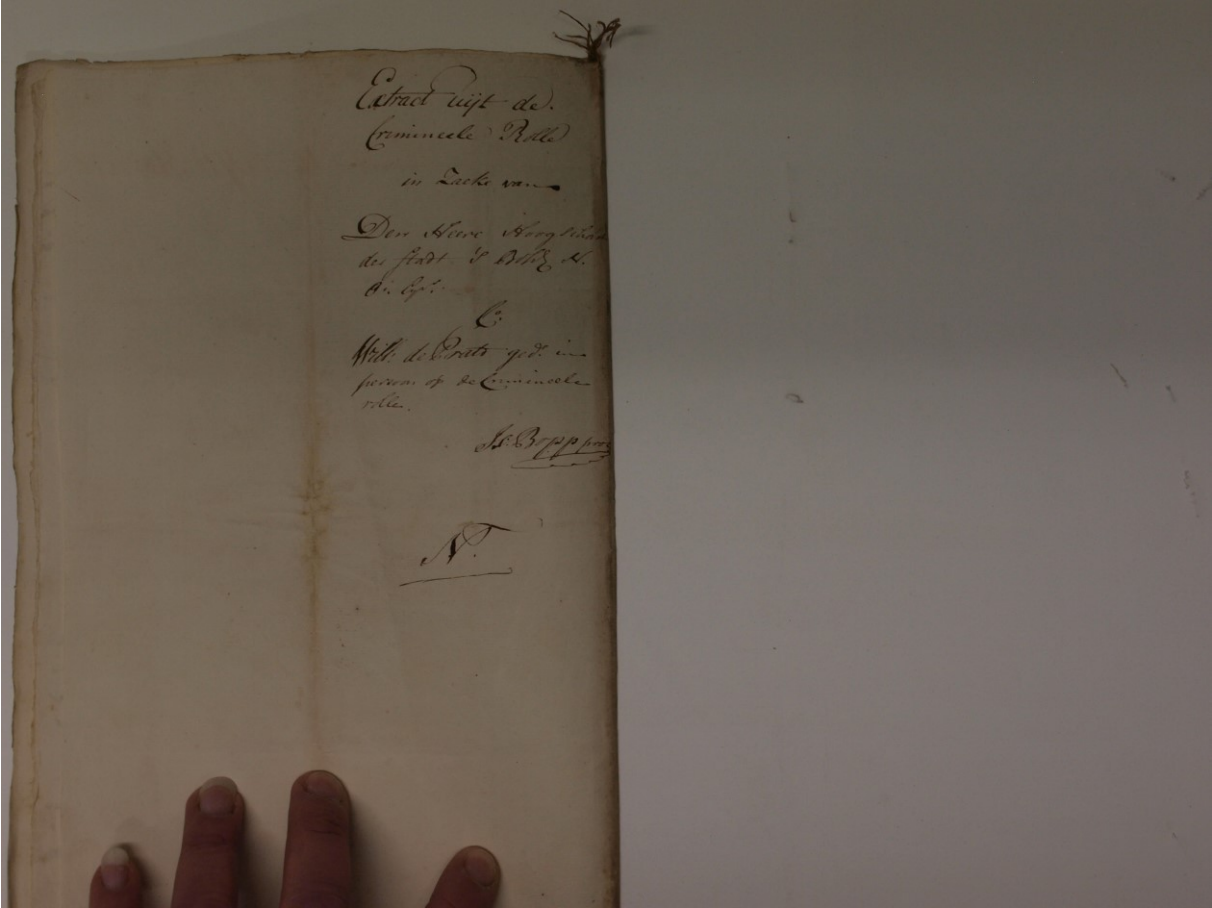 Extract uijt de
Crimineele Rolle
in Zacke van
Den Heere Hoogschou
der Stadt 'S N.
C:
Will: de Prats ged: in
persoon op de Crimineele
rolle.
Bopp
N.